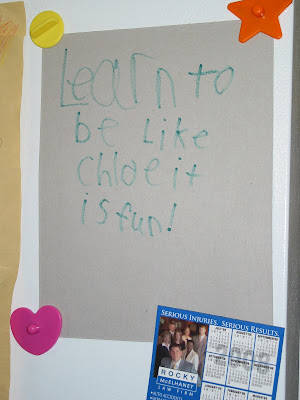 Learn to
be Like
Chloe it
is fun!
SERIOUS INJURIES. SERIOUS RESULTS.
ROCKY
MCELHANEY
LAW FIRM
•AUTO ACCIDENTS